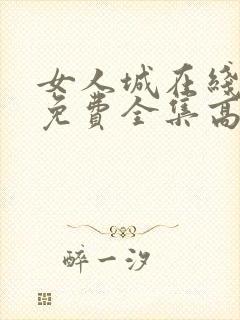 女人城在线
免费全集高
醉一汐